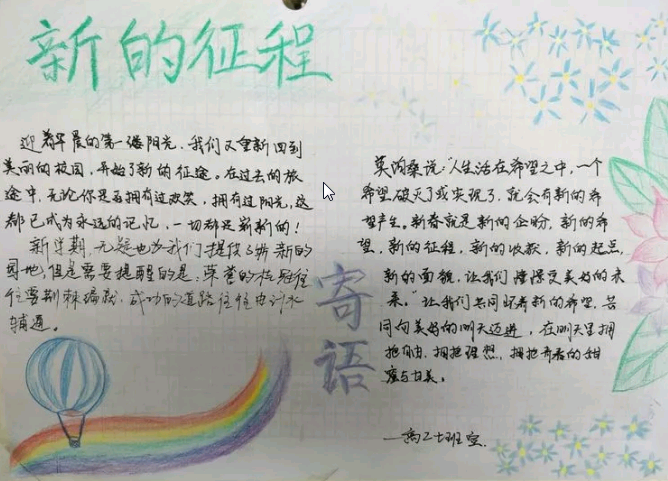 新的征程
迎着早晨的第一缕阳光，我们又重新回到
美丽的校园，开始了新的征途。在过去的旅
途中，无论你是否拥有过欢笑，拥有过阳光，这
都已成为永远的记忆，一切都是崭新的！
新学期，无疑也为我们提供了崭新的
园地，但是需要提醒的是：荣誉的桂冠往
往要荆棘编就，成功的道路往往由汗水
铺通。
寄语
莫泊桑说："人生活在希望之中，一个
希望破灭了或实现了，就会有新的希
望产生。新春就是新的企盼，新的希
望，新的征程，新的收获，新的起点，
新的面貌，让我们憧憬更美好的未
来。"让我们共同怀着新的希望，共
同向美好的明天迈进，在明天里拥
抱自由，拥抱理想，拥抱青春的甜
蜜与甘美。
——高二七班